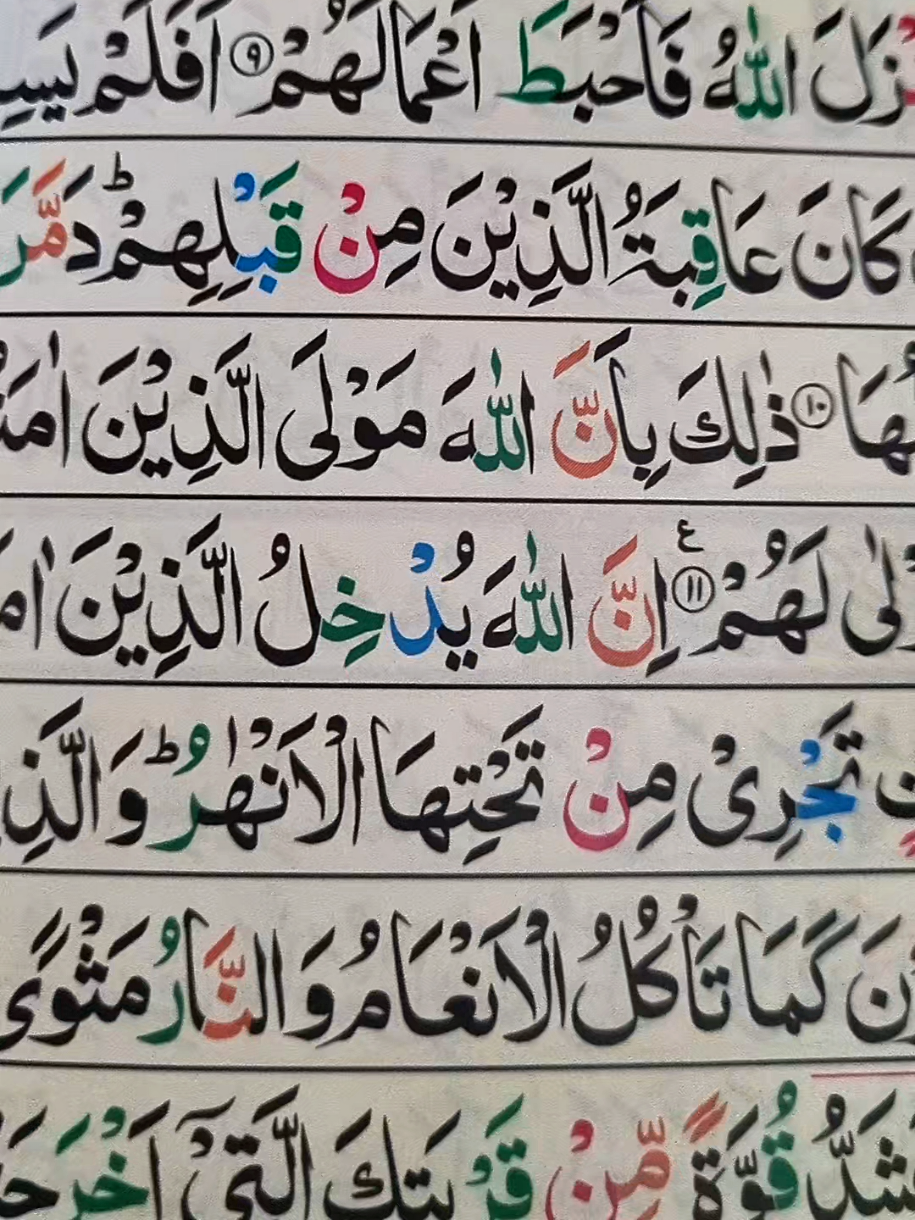 نْزَلَ اللّٰهُ فَاَحْبَطَ اَعْمَالَهُمْ ۹ اَفَلَمْ يَسِ
كَانَ عَاقِبَةُ الَّذِيْنَ مِنْ قَبْلِهِمْ ؕ دَمَّرَ
لُهَا ۱۰ ذٰلِكَ بِاَنَّ اللّٰهَ مَوْلَى الَّذِيْنَ اٰمَنُ
وْلٰى لَهُمْ ۱۱ ع اِنَّ اللّٰهَ يُدْخِلُ الَّذِيْنَ اٰمَ
تٍ تَجْرِىْ مِنْ تَحْتِهَا الْاَنْهٰرُ ؕ وَ الَّذِ
نَ كَمَا تَاْكُلُ الْاَنْعَامُ وَ النَّارُ مَثْوًى
شَدُّ قُوَّةً مِّنْ قَرْيَتِكَ الَّتِىْۤ اَخْرَجَ